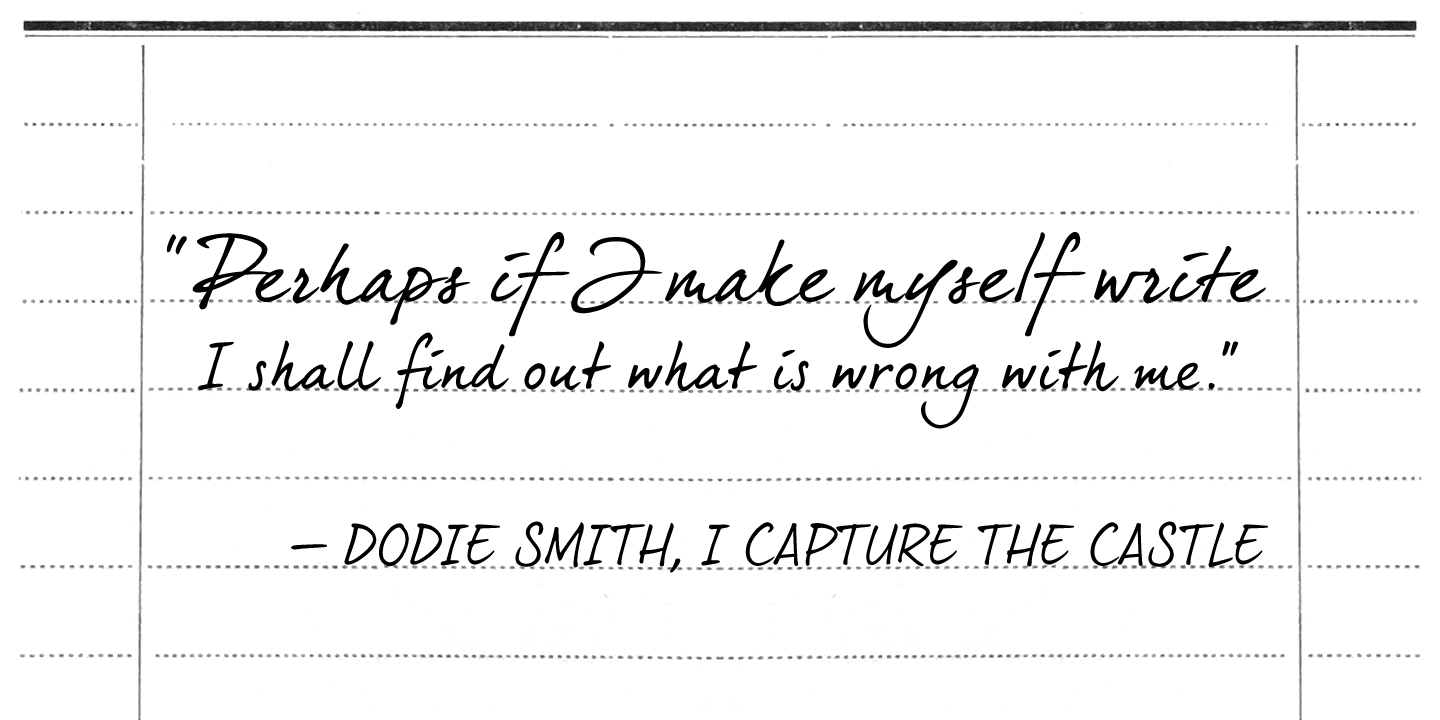 "Perhaps if I make myself write
I shall find out what is wrong with me."
– DODIE SMITH, I CAPTURE THE CASTLE